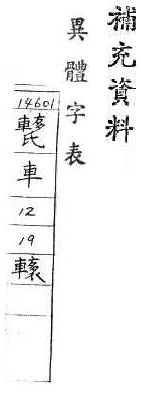 補充資料
異體字表
14601
車
12
19